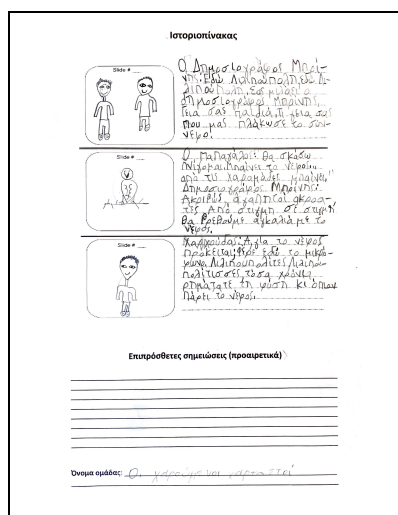 Ιστοριοπίνακας
Slide # __
Ο Δημοσιογράφος Μπρίνης: Εδώ Λιλιπούπολη, εδώ Λι-
λιπούπολη. Σας μιλάει ο
δημοσιογράφος Μπρίνης.
Γεια σας παιδιά,
που μας πλάκωσε το σύν-
νεφο.
Slide # __
Ο Παπαγάλος: Θα σκάσω
πνίγομαι. Μπαίνει το νέφος...
από τις χαραμάδες μπαίνει."
Δημοσιογράφος Μπρίνης:
Ακριβώς, αγαπητοί ακροα-
τές από στιγμή σε στιγμή
θα βρεθούμε αγκαλιά με το
νέφος.
Slide # __
Χαρχούδας: Α, για το νέφος
πρόκειται; Φέρε εδώ το μικρό-
φωνο. Λιλιπουπολίτες Λιλιπου-
πολίτισσες, τόσα χρόνια
τη φύση κι όποιον
πάρει το νέφος.
Επιπρόσθετες σημειώσεις (προαιρετικά)
Όνομα ομάδας: Οι χαρούμενοι